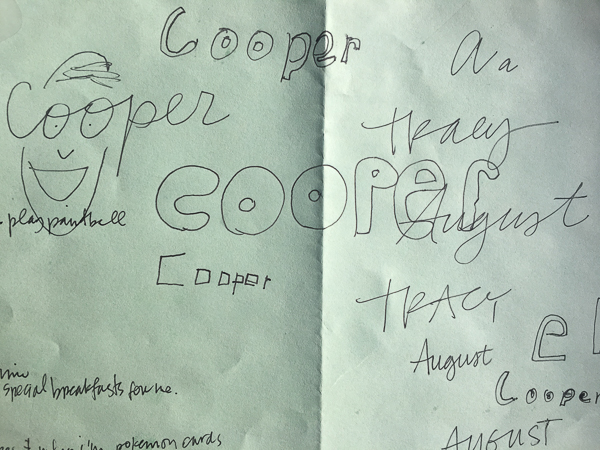 Cooper
Cooper
play paintball
Cooper
Cooper
special breakfasts for me.
pokemon cards
Aa
Tracy
August
TRACY
August
el
Cooper
AUGUST